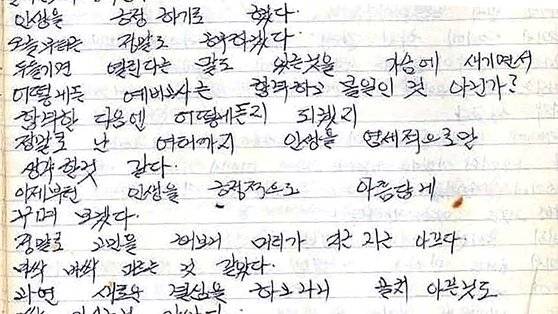 인생을 긍정 하기로 했다.
오늘 하루는 정말로 허무했다.
두들기면 열린다는 말도 있는것을 가슴에 새기면서
어떻게든 예비고사는 합격하고 볼일인 것 아닌가?
합격한 다음엔 어떻게든지 되겠지
정말로 난 여태까지 인생을 염세적으로만
생각 한것 같다.
이제부턴 인생을 긍정적으로 아름답게
꾸며 보겠다.
정말로 고민을 해보니 머리가 지근 지근 아프다.
바싹 바싹 마르는 것 같았다.
과연 새로운 결심을 하고나니 골치 아픈것도